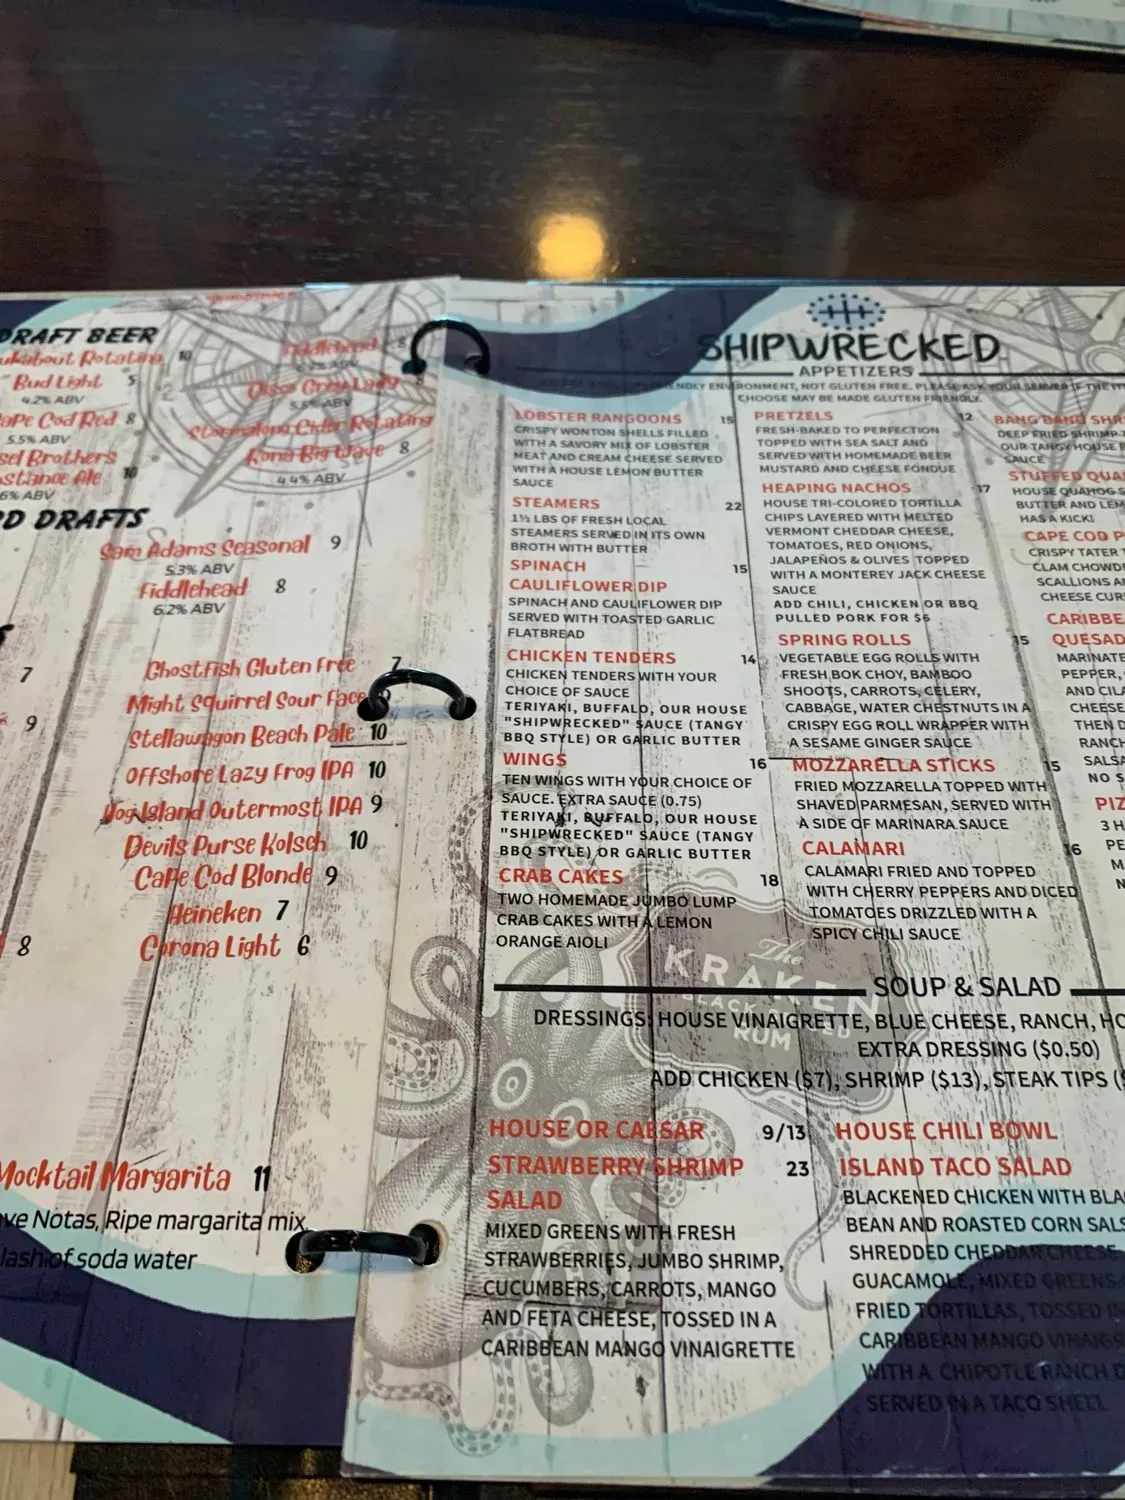 DRAFT BEER
Rotating 10
Bud Light 5
4.2% ABV
Cape Cod Red 8
5.5% ABV
Brothers
Ale 10
6% ABV
Fiddlehead 8
Cisco Grey Lady 8
Stormalong Cider Rotating
Kona Big Wave 8
4.4% ABV
DRAFTS
Sam Adams Seasonal 9
5.3% ABV
Fiddlehead 8
6.2% ABV
7
9
8
Ghostfish Gluten Free 7
Might Squirrel Sour Face
Stellawagon Beach Pale 10
Offshore Lazy Frog IPA 10
Hog Island Outermost IPA 9
Devils Purse Kolsch 10
Cape Cod Blonde 9
Heineken 7
Corona Light 6
Mocktail Margarita 11
Notas, Ripe margarita mix,
of soda water
SHIPWRECKED
APPETIZERS
ENVIRONMENT, NOT GLUTEN FREE. PLEASE ASK YOUR SERVER IF THE
CHOOSE MAY BE MADE GLUTEN FRIENDLY.
LOBSTER RANGOONS 15
CRISPY WONTON SHELLS FILLED
WITH A SAVORY MIX OF LOBSTER
MEAT AND CREAM CHEESE SERVED
WITH A HOUSE LEMON BUTTER
SAUCE
STEAMERS 22
1½ LBS OF FRESH LOCAL
STEAMERS SERVED IN ITS OWN
BROTH WITH BUTTER
SPINACH 15
CAULIFLOWER DIP
SPINACH AND CAULIFLOWER DIP
SERVED WITH TOASTED GARLIC
FLATBREAD
CHICKEN TENDERS 14
CHICKEN TENDERS WITH YOUR
CHOICE OF SAUCE
TERIYAKI, BUFFALO, OUR HOUSE
"SHIPWRECKED" SAUCE (TANGY
BBQ STYLE) OR GARLIC BUTTER
WINGS 16
TEN WINGS WITH YOUR CHOICE OF
SAUCE. EXTRA SAUCE (0.75)
TERIYAKI, BUFFALO, OUR HOUSE
"SHIPWRECKED" SAUCE (TANGY
BBQ STYLE) OR GARLIC BUTTER
CRAB CAKES 18
TWO HOMEMADE JUMBO LUMP
CRAB CAKES WITH A LEMON
ORANGE AIOLI
PRETZELS 12
FRESH-BAKED TO PERFECTION
TOPPED WITH SEA SALT AND
SERVED WITH HOMEMADE BEER
MUSTARD AND CHEESE FONDUE
HEAPING NACHOS 17
HOUSE TRI-COLORED TORTILLA
CHIPS LAYERED WITH MELTED
VERMONT CHEDDAR CHEESE,
TOMATOES, RED ONIONS,
JALAPEÑOS & OLIVES TOPPED
WITH A MONTEREY JACK CHEESE
SAUCE
ADD CHILI, CHICKEN OR BBQ
PULLED PORK FOR $6
SPRING ROLLS 15
VEGETABLE EGG ROLLS WITH
FRESH BOK CHOY, BAMBOO
SHOOTS, CARROTS, CELERY,
CABBAGE, WATER CHESTNUTS IN A
CRISPY EGG ROLL WRAPPER WITH
A SESAME GINGER SAUCE
MOZZARELLA STICKS 15
FRIED MOZZARELLA TOPPED WITH
SHAVED PARMESAN, SERVED WITH
A SIDE OF MARINARA SAUCE
CALAMARI 16
CALAMARI FRIED AND TOPPED
WITH CHERRY PEPPERS AND DICED
TOMATOES DRIZZLED WITH A
SPICY CHILI SAUCE
BANG BANG SHR
DEEP FRIED SHRIMP
OUR TANGY HOUSE
SAUCE
STUFFED QUA
HOUSE QUAHOG S
BUTTER AND LEM
HAS A KICK!
CAPE COD P
CRISPY TATER T
CLAM CHOWD
SCALLIONS A
CHEESE CUR
CARIBBE
QUESAD
MARINATE
PEPPER,
AND CILA
CHEESE
THEN D
RANCH
SALSA
NO S
PIZ
3 H
PE
M
The
KRAKEN
BLACK SPICED
RUM
SOUP & SALAD
DRESSINGS: HOUSE VINAIGRETTE, BLUE CHEESE, RANCH, HO
EXTRA DRESSING ($0.50)
ADD CHICKEN ($7), SHRIMP ($13), STEAK TIPS (
HOUSE OR CAESAR 9/13
STRAWBERRY SHRIMP 23
SALAD
MIXED GREENS WITH FRESH
STRAWBERRIES, JUMBO SHRIMP,
CUCUMBERS, CARROTS, MANGO
AND FETA CHEESE, TOSSED IN A
CARIBBEAN MANGO VINAIGRETTE
HOUSE CHILI BOWL
ISLAND TACO SALAD
BLACKENED CHICKEN WITH BLA
BEAN AND ROASTED CORN SALS
SHREDDED CHEDDAR CHEESE,
GUACAMOLE, MIXED GREENS
FRIED TORTILLAS, TOSSED IN
CARIBBEAN MANGO VINAIGR
WITH A CHIPOTLE RANCH D
SERVED IN A TACO SHELL